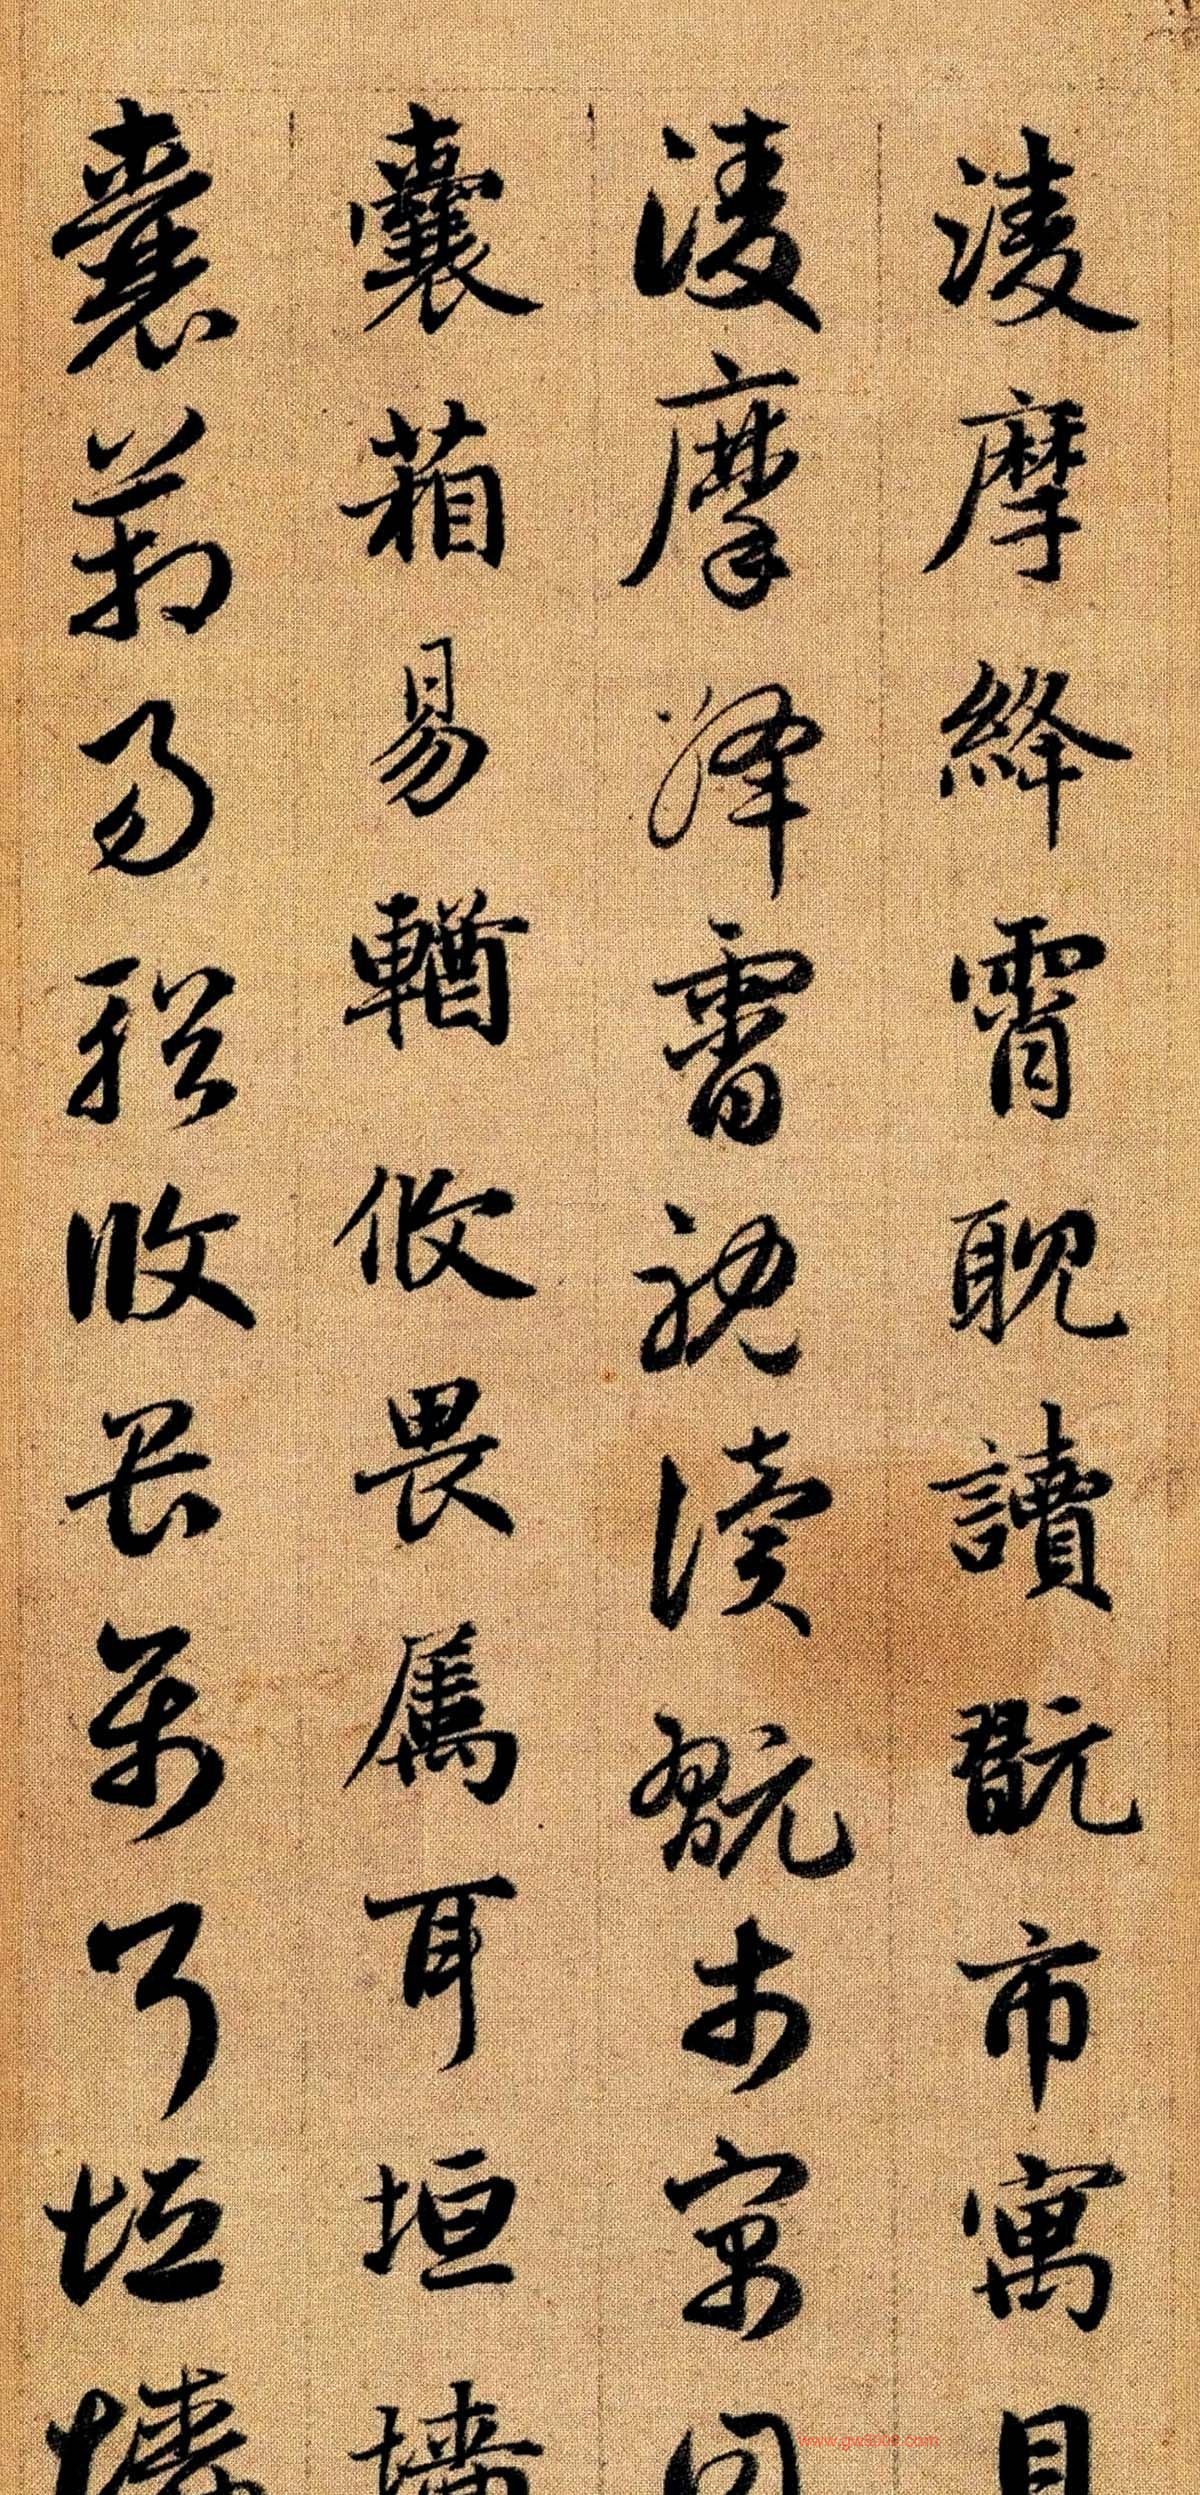 凌摩絳霄耽讀翫市寓目
凌摩絳霄耽讀翫市寓目
囊箱易輶攸畏属耳垣墻
囊箱易輶攸畏属耳垣墻
www.gw5000.com